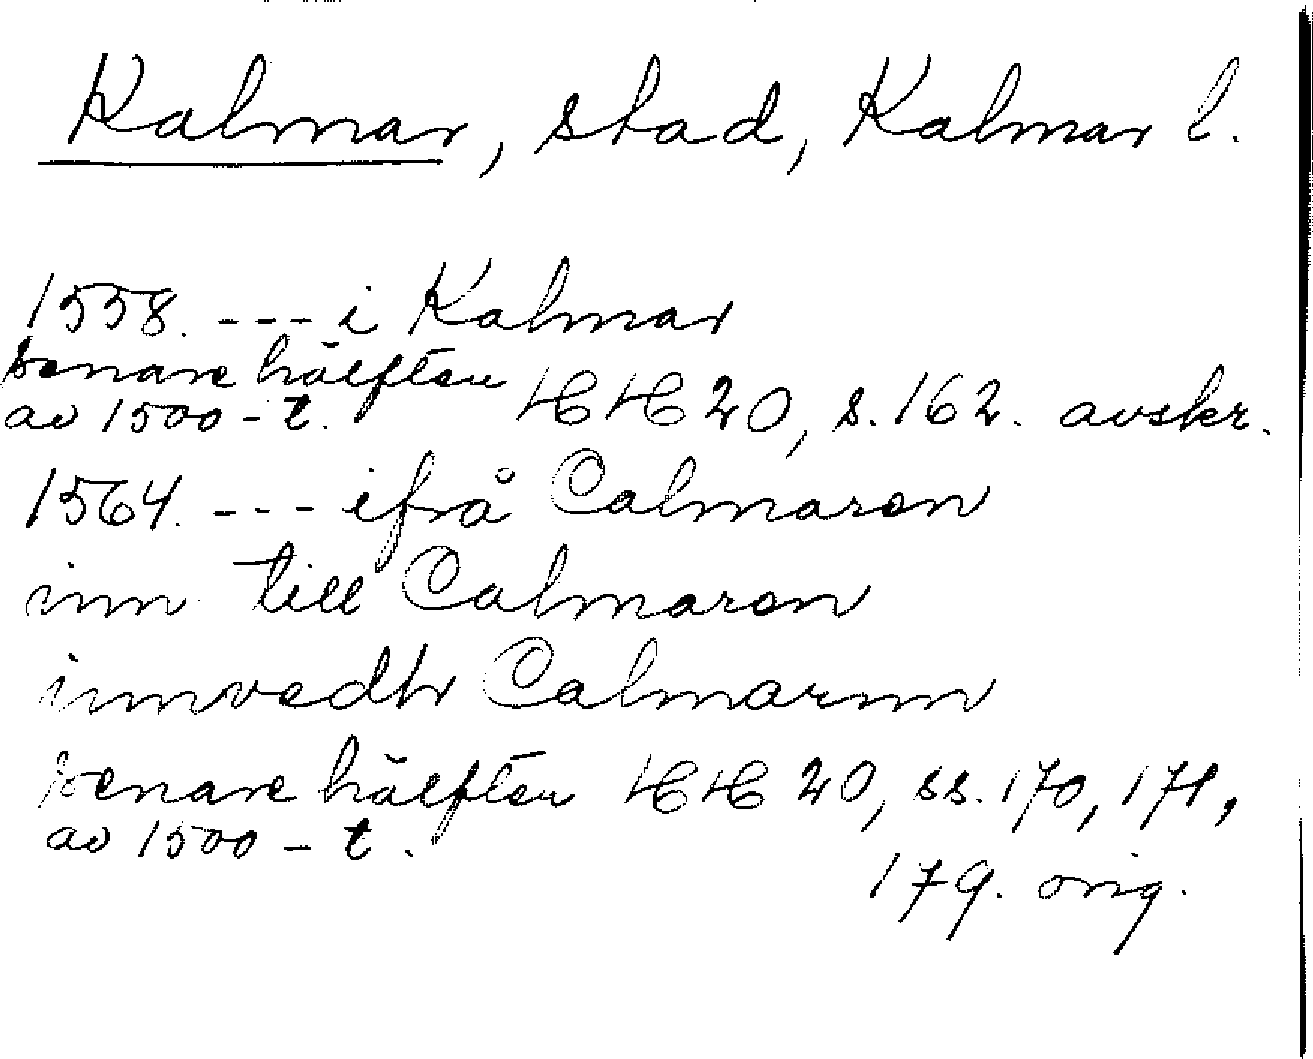 Kalmar, stad, Kalmar l.
1558. --- i Kalmar
senare hälften
av 1500-t. HH 20, s. 162. avskr.
1564. --- ifrå Calmaren
inn till Calmaren
innvedh Calmarnn
senare hälften HH 20, ss. 170, 171,
av 1500-t.
179. orig.